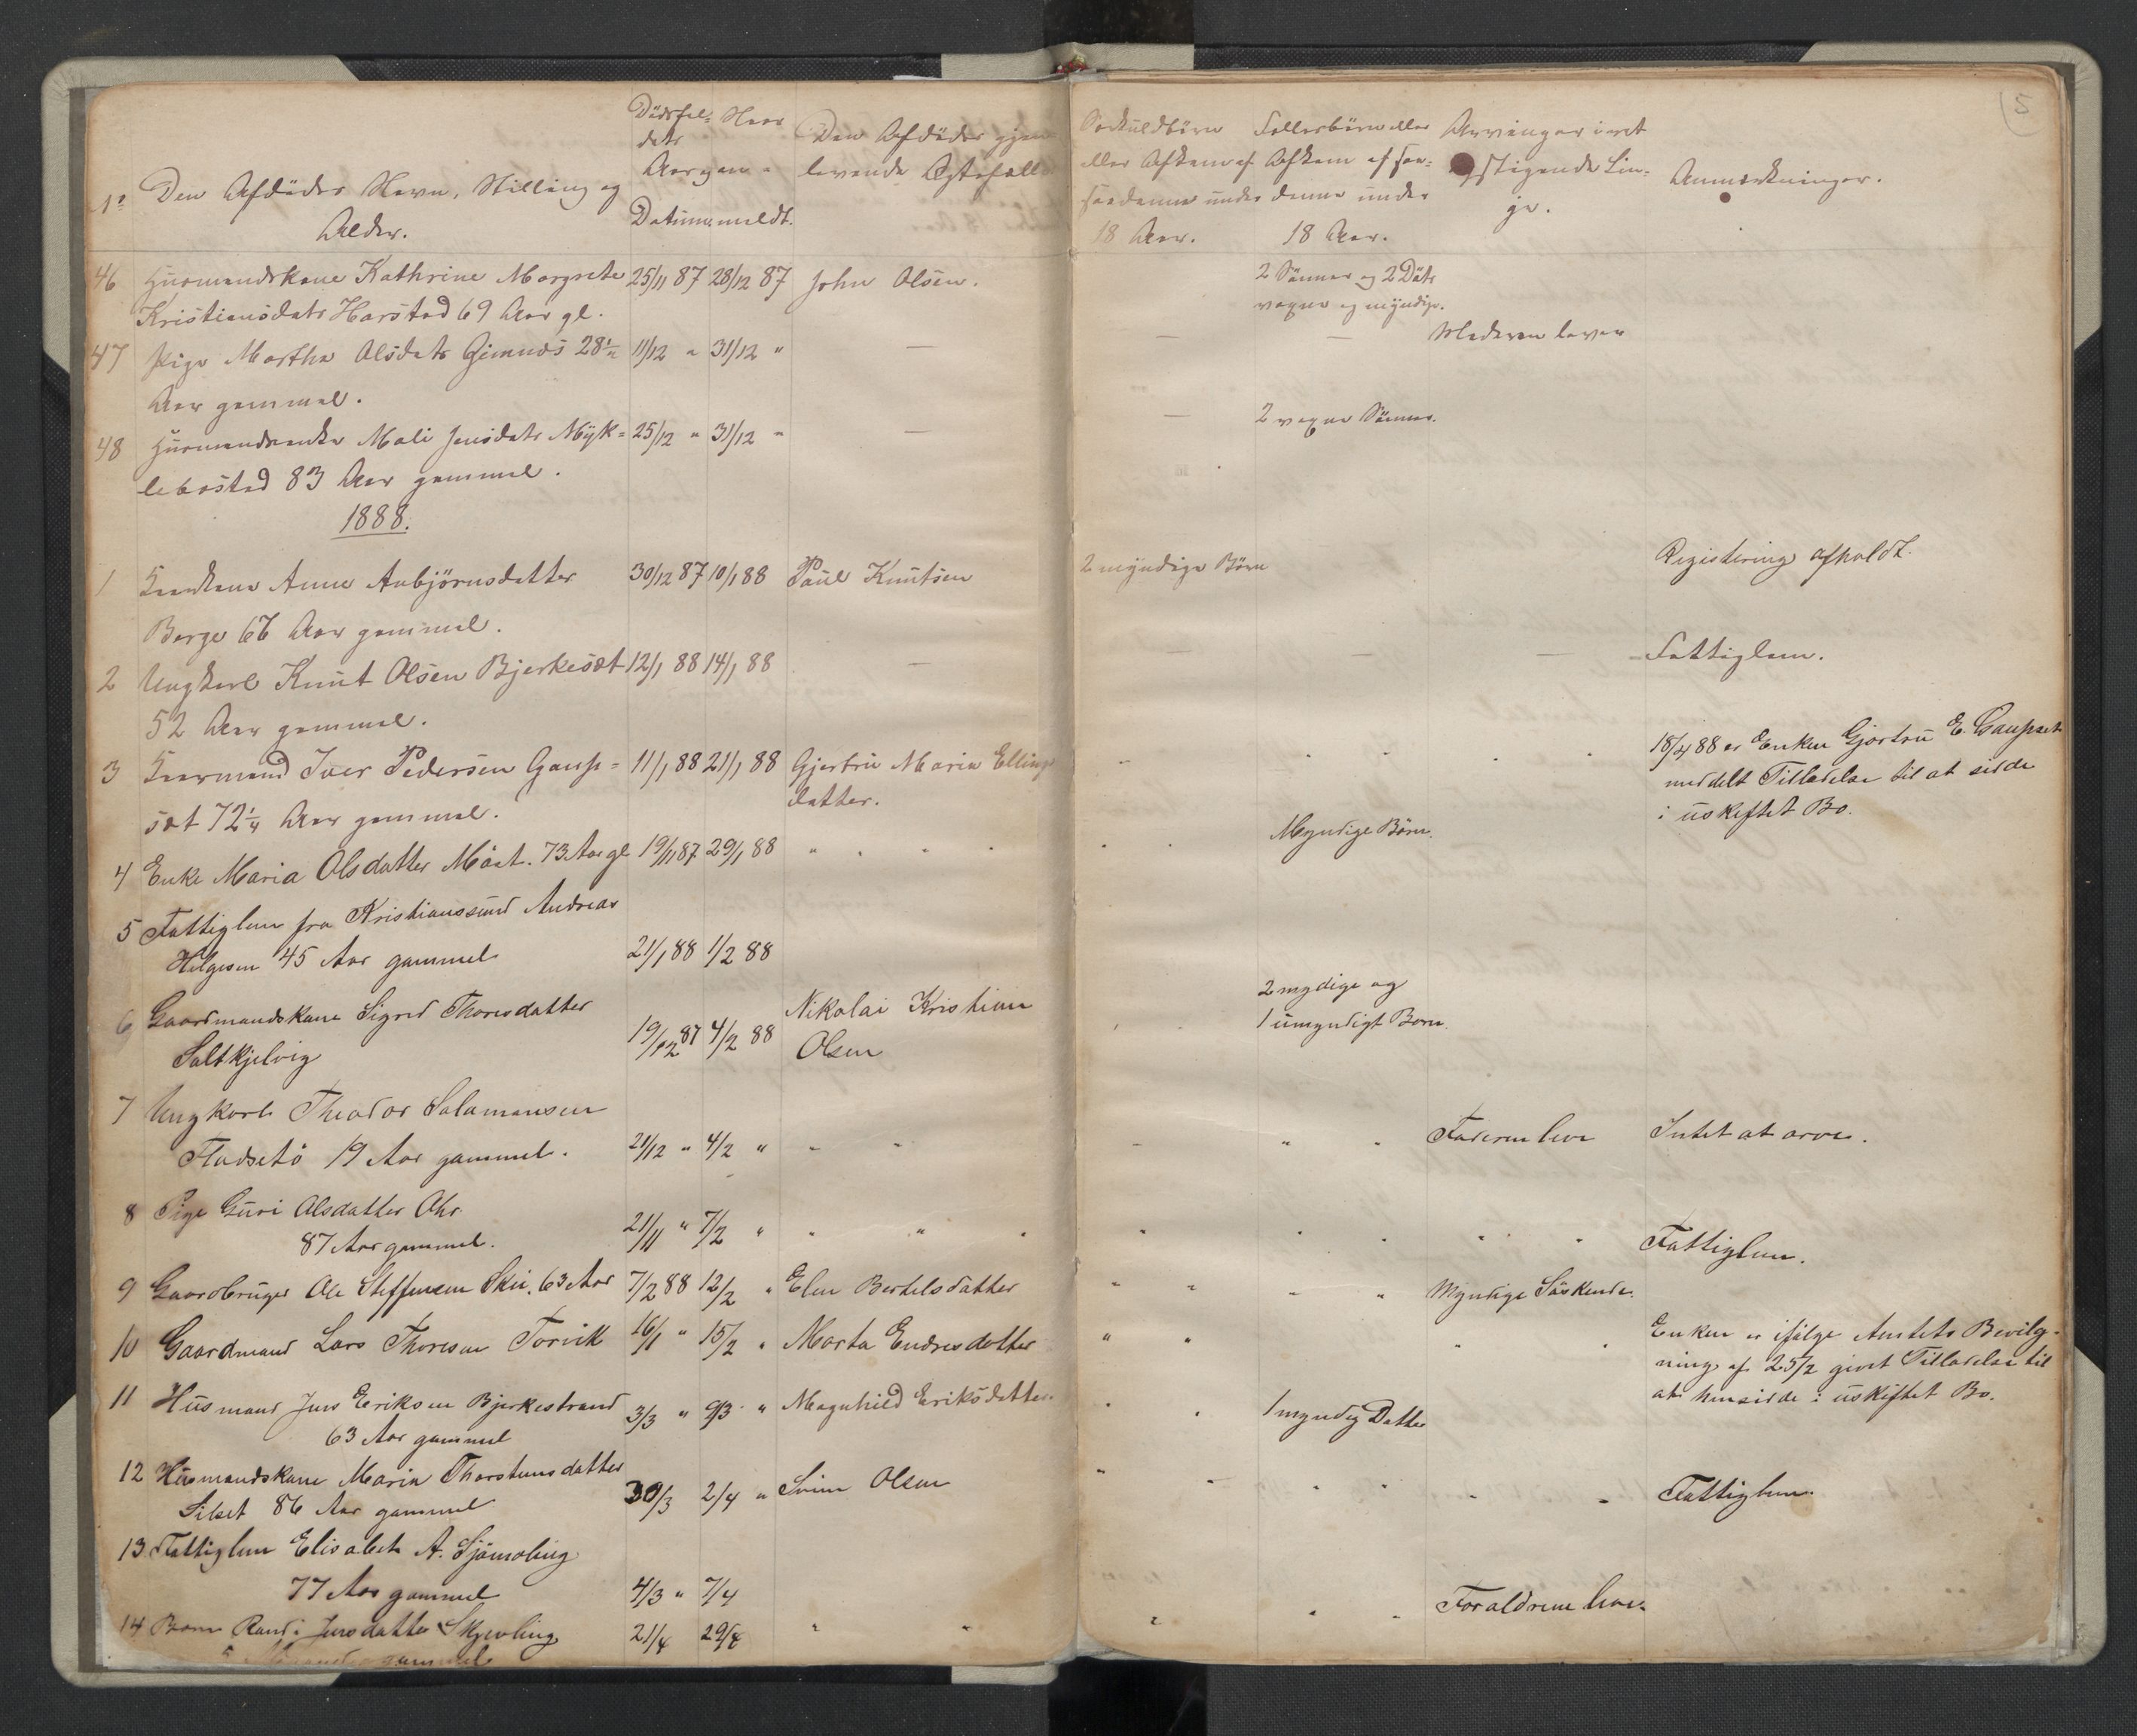 5
Nº
Den Afdödes Navn, Stilling og
Alder.
Dödsfal-
dets
Aar og
Datum
Naar
an-
meldt.
Den Afdödes gjen-
levende Ægtefælle
Særkuldbörn
eller Afkom af
saadanne under
18 Aar.
Fellesbörn eller
Afkom af saa-
danne under
18 Aar.
Arvinger i ret
opstigende Lin-
je.
Anmærkninger.
46 Husmandskone Kathrine Margrete 25/11 87 28/12 87 John Olsen.
Kristiansdatr Harstad 69 Aar gl.
2 Sönner og 2 Dötr
voxne og myndige.
47 Pige Martha Olsdatr Gimnæs 28 1/2 11/12 " 31/12 " —
Aar gammel.
— — Moderen lever
48 Husmandsenke Mali Jensdatr Myk- 25/12 " 31/12 " —
lebostad 83 Aar gammel.
— 2 voxne Sönner.
1888.
1 Anne Anbjörnsdatter 30/12 87 10/1 88 Paul Knutsen
Berge 67 Aar gammel.
2 myndige Börn Registering afholdt.
2 Ungkarl Knut Olsen Bjerkesæt 12/1 88 14/1 88 —
52 Aar gammel.
— — — Fattiglem.
3 Iver Pedersen Gaup- 11/1 88 21/1 88 Gjertru Maria Ellings
sæt 72 1/4 Aar gammel. datter.
18/4 88 er Enken Gjertru E. Gaupset
meddelt Tilladelse til at sidde
i uskiftet Bo.
4 Enke Maria Olsdatter Möst. 73 Aar gl 19/11 87 29/1 88 "
Myndige Börn.
5 Fattiglem fra Kristianssund Andreas
Helgesen 45 Aar gammel 21/1 88 1/2 88
6 Gaardmandskone Sigrid Thoresdatter
Saltkjelvig 19/12 87 4/2 88
Nikolai Kristian
Olsen
2 mydige og
1 umyndigt Barn.
7 Ungkarl Theodor Salamonsen
Fladsetö 19 Aar gammel. 21/12 " 4/2 "
Faderen lever Intet at arve.
8 Pige Guri Olsdatter Ohr
87 Aar gammel. 21/11 " 7/2 "
Fattiglem.
9 Gaardbruger Ole Steffensen Skei, 63 Aar 7/2 88 12/2 " Elen Bertelsdatter
Myndige Söskende.
10 Gaardmand Lars Thoresen Torvik 16/1 " 15/2 " Marta Endresdatter
Enken er ifölge Amtets Bevilg-
ning af 25/2 givet Tilladelse til
at hensidde i uskiftet Bo.
11 Husmand Jens Eriksen Bjerkestrand 3/3 " 9/3 " Magnhild Eriksdatter.
63 Aar gammel
1 myndig Datter
12 Husmandskone Maria Thorstensdatter
Silset 86 Aar gammel 30/3 2/4 " Svein Olsen
Fattiglem.
13 Fattiglem Elisabeth A. Sjömoling
77 Aar gammel 4/3 " 7/4
14 Barn Randi Jensdatter Skjevling 21/4 29/4
5 Maaneder gammel.
Foraldrene lever.